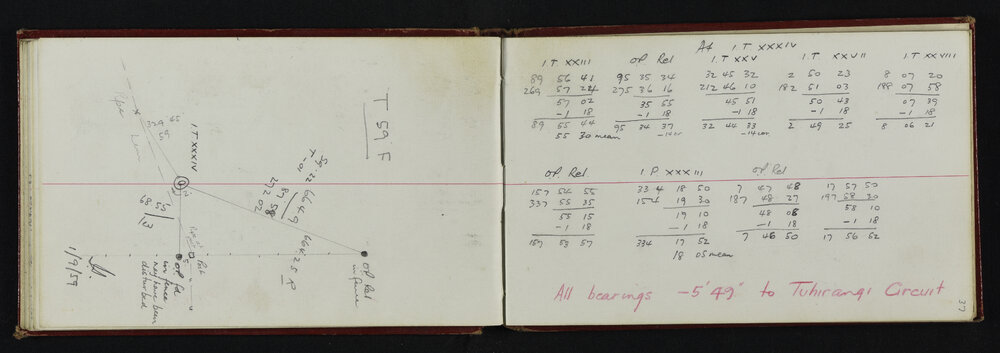 T 59 F
I TXXXIV
329 45
59
68 55
272 02
664.25 P
O.P. Rel
in fence
O.P. fd
in fence
may have been
disturbed
1/9/59
At I.T XXXIV
I.T XXIII O.P. Rel I.T XXV I.T XXVII I.T XXVIII
89 56 41 95 35 34 32 45 32 2 50 23 8 07 20
269 57 24 275 36 16 212 46 10 182 51 03 188 07 58
57 02 35 55 45 51 50 43 07 39
-1 18 -1 18 -1 18 -1 18 -1 18
89 55 44 95 34 37 32 44 33 2 49 25 8 06 21
55 30 mean -14 cor -14 cor
O.P. Rel I P XXXIII O.P. Rel
157 54 55 334 18 50 7 47 48 17 57 50
337 55 35 154 19 30 187 48 27 197 58 30
55 15 19 10 48 08 58 10
-1 18 -1 18 -1 18 -1 18
157 53 57 334 17 52 7 46 50 17 56 52
18 05 mean
All bearings -5' 49" to Tuhirangi Circuit
37